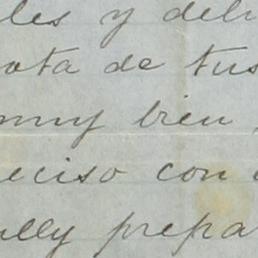 les y deli
ota de tus
muy bien,
eciso con
ully prepa